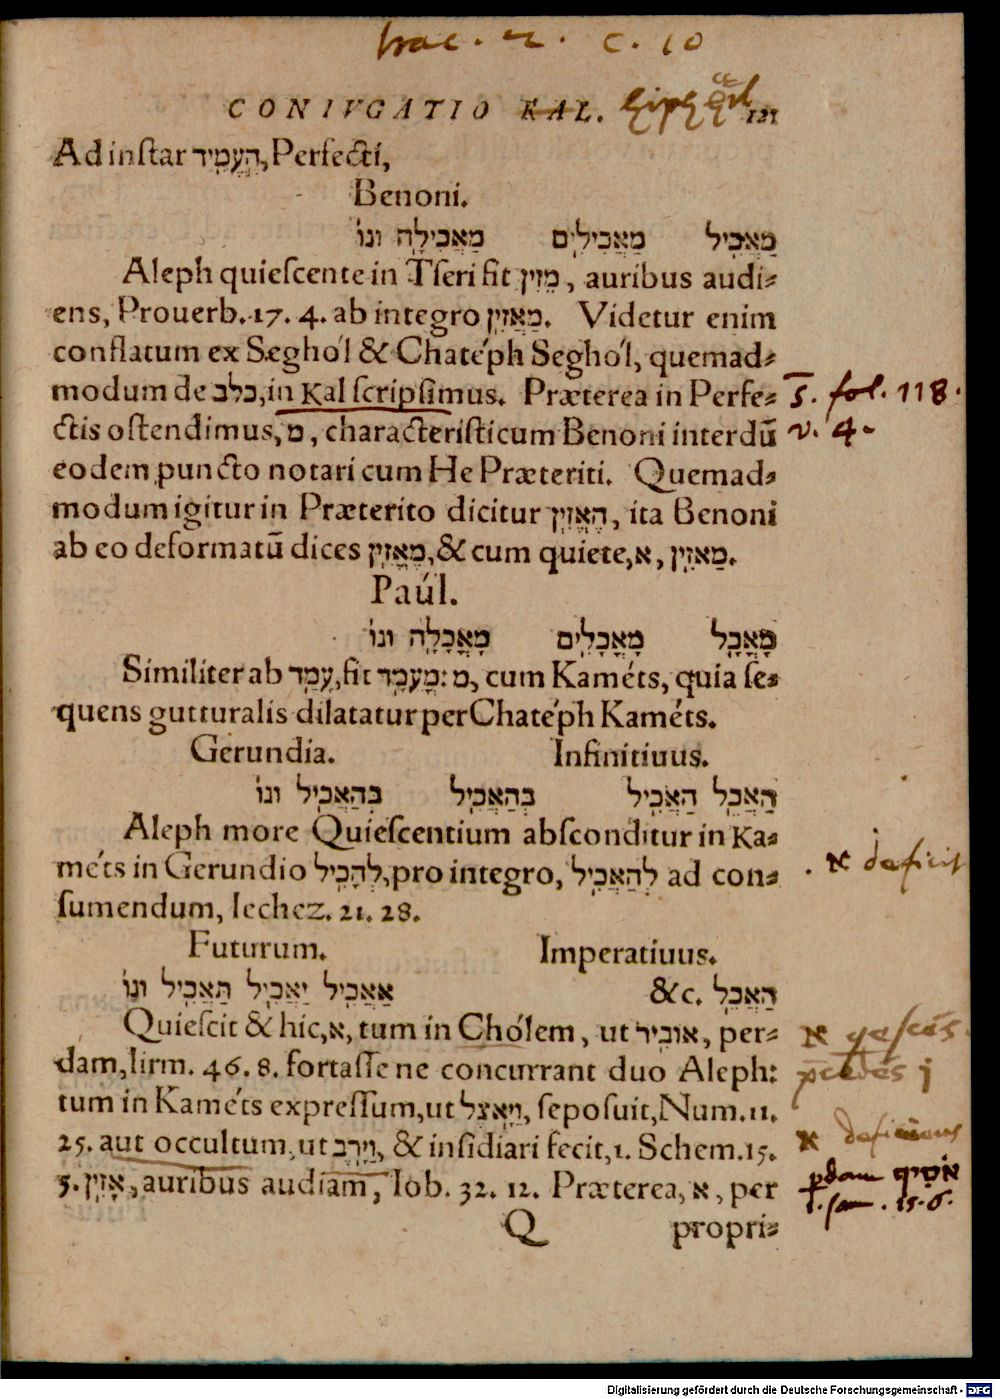 c. 10
CONIVGATIO KAL. 121
Ad inſtar הֶעֱמִיד, Perfecti,
Benoni.
מַאֲכִיל מַאֲכִילִים מַאֲכִילָה וגו
Aleph quieſcente in Tſeri fit מֵזִין, auribus audi-
ens, Prouerb. 17. 4. ab integro מַאֲזִין. Videtur enim
conflatum ex Sæghól & Chatéph Seghól, quemad-
modum de כלב, in Kal ſcripſimus. Præterea in Perfe-
ctis oſtendimus, מ, characteriſticum Benoni interdū
eodem puncto notari cum He Præteriti. Quemad-
modum igitur in Præterito dicitur הֶאֱזִין, ita Benoni
ab eo deformatū dices מֶאֱזִין, & cum quiete, א, מַאזִין.
Paúl.
מָאֳכָל מָאֳכָלִים מָאֳכָלָה וגו
Similiter ab עֳמַד, fit מָעֳמָד: מ, cum Kaméts, quia ſe-
quens gutturalis dilatatur per Chatéph Kaméts.
Gerundia. Infinitiuus.
הַאֲכֵל הַאֲכִיל בְּהַאֲכִיל בְּהַאֲכִיל וגו
Aleph more Quieſcentium abſconditur in Ka-
méts in Gerundio לְהָכִיל, pro integro, לְהַאֲכִיל ad con-
ſumendum, Iechez. 21. 28.
Futurum. Imperatiuus.
הַאֲכֵל &c. אַאֲכִיל יַאֲכִיל תַּאֲכִיל וגו
Quieſcit & hic, א, tum in Chólem, ut אוֹבִיר, per-
dam, Iirm. 46. 8. fortaſſe ne concurrant duo Aleph:
tum in Kaméts expreſſum, ut וַיָּאצֶל, ſepoſuit, Num. 11.
25. aut occultum, ut וַיָּרֶב, & inſidiari fecit, 1. Schem. 15.
5. אָזִין, auribus audiam, Iob. 32. 12. Præterea, א, per
Q propri-
s. fol. 118.
v. 4.
א deficit
א
א deficiens
אֹסִיף
1. sam. 15. 6.
Digitalisierung gefördert durch die Deutsche Forschungsgemeinschaft - DFG